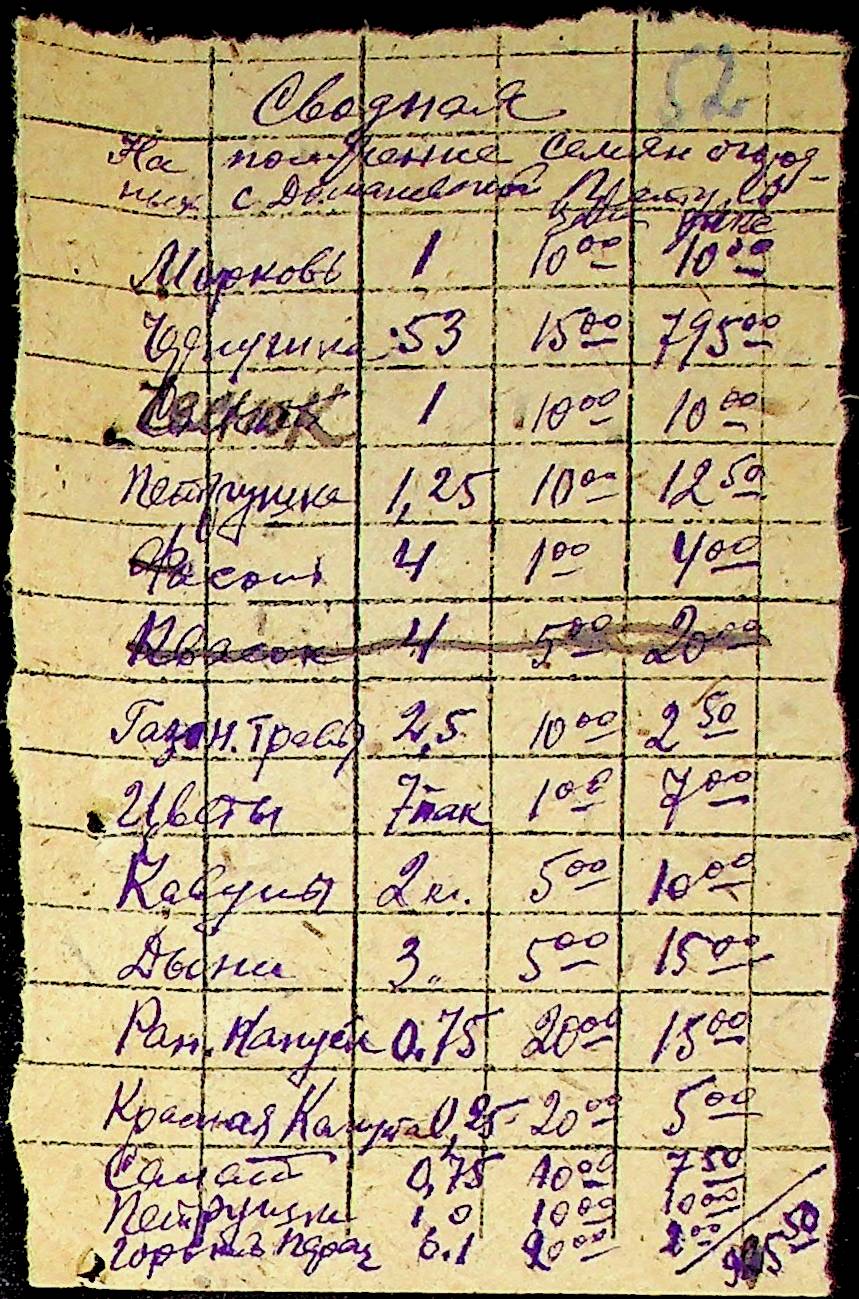 52
Сводная
На получение семян огород-
ных с Доманевской
Морковь 1 10 00 10 00
53 15 00 795 00
Чеснок 1 10 00 10 00
Петрушка 1,25 10 00 12 50
Фасоль 4 1 00 4 00
Квасок 4 5 00 20 00
Газон. трава 2,5 10 00 2 50
Цветы 7 пак 1 00 7 00
Кавуны 2 кг. 5 00 10 00
Дыни 3 „ 5 00 15 00
Ран. Капуста 0.75 20 00 15 00
Красная Капуста 0,25 20 00 5 00
Салат 0,75 10 00 7 50
Петрушки 1,0 10 00 10 00
Горьк. перец 0.1 20 00 2 00